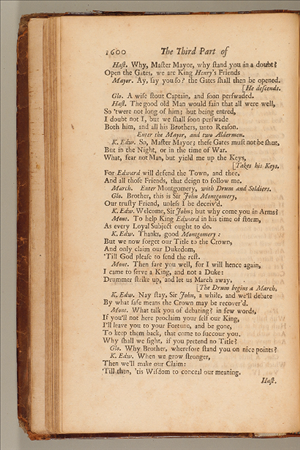 1600 The Third Part of
Hast. Why, Master Mayor, why stand you in a doubt?
Open the Gates, we are King Henry's Friends
Mayor. Ay, say you so? the Gates shall then be opened.
[He descends.
Glo. A wise stout Captain, and soon perswaded.
Hast. The good old Man would fain that all were well,
So 'twere not long of him; but being entred,
I doubt not I, but we shall soon perswade
Both him, and all his Brothers, unto Reason.
Enter the Mayor, and two Aldermen.
K. Edw. So, Master Mayor; these Gates must not be shut,
But in the Night, or in the time of War.
What, fear not Man, but yield me up the Keys,
[Takes his Keys.
For Edward will defend the Town, and thee,
And all those Friends, that deign to follow me.
March. Enter Montgomery, with Drum and Soldiers.
Glo. Brother, this is Sir John Montgomery,
Our trusty Friend, unless I be deceiv'd.
K. Edw. Welcome, Sir John; but why come you in Arms?
Mont. To help King Edward in his time of storm,
As every Loyal Subject ought to do.
K. Edw. Thanks, good Montgomery:
But we now forget our Title to the Crown,
And only claim our Dukedom,
'Till God please to send the rest.
Mont. Then fare you well, for I will hence again,
I came to serve a King, and not a Duke:
Drummer strike up, and let us March away.
[The Drum begins a March.
K. Edw. Nay stay, Sir John, a while, and we'll debate
By what safe means the Crown may be recover'd.
Mont. What talk you of debating? in few words,
If you'll not here proclaim your self our King,
I'll leave you to your Fortune, and be gone,
To keep them back, that come to succour you.
Why shall we fight, if you pretend no Title?
Glo. Why Brother, wherefore stand you on nice points?
K. Edw. When we grow stronger,
Then we'll make our Claim:
'Till then, 'tis Wisdom to conceal our meaning.
Hast.